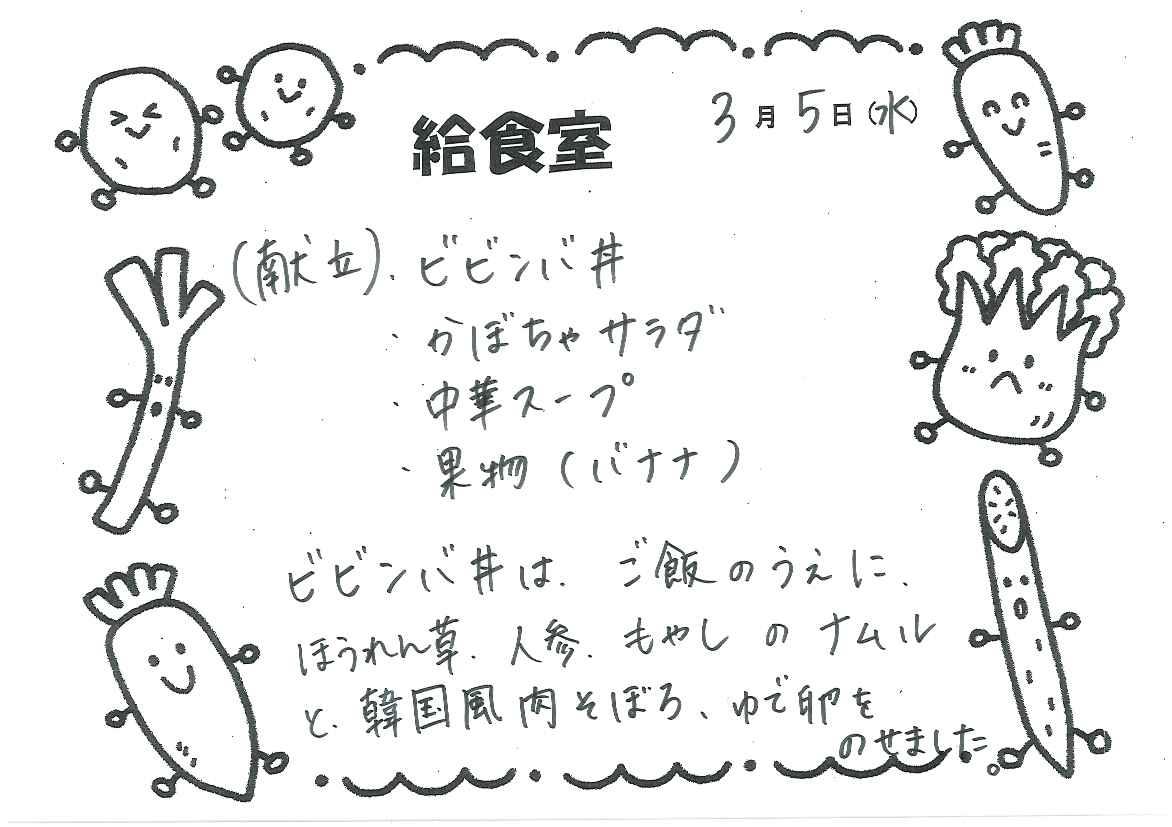 給食室
3月5日(水)
(献立)・ビビンバ丼
・かぼちゃサラダ
・中華スープ
・果物(バナナ)
ビビンバ丼は、ご飯のうえに、
ほうれん草、人参、もやしのナムル
と、韓国風肉そぼろ、ゆで卵を
のせました。